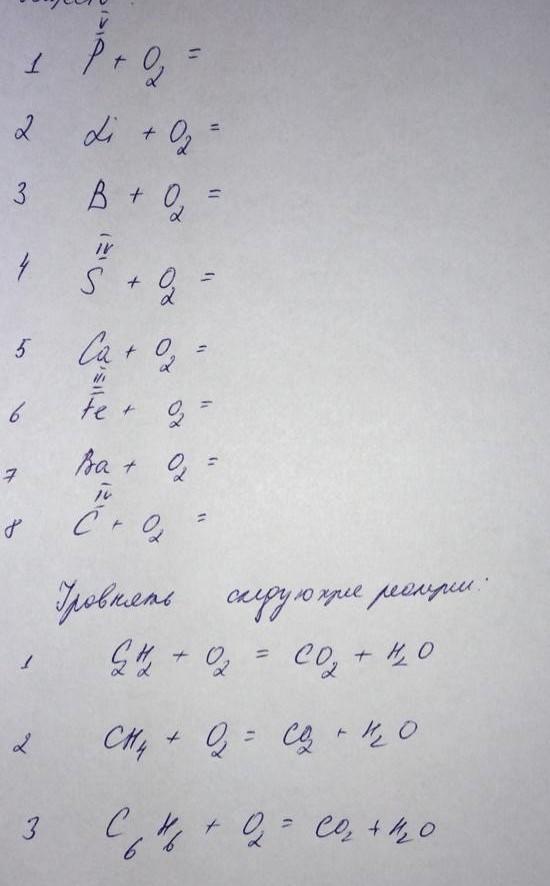 V
1 P + O2 =
2 Li + O2 =
3 B + O2 =
IV
4 S + O2 =
5 Ca + O2 =
III
6 Fe + O2 =
7 Ba + O2 =
IV
8 C + O2 =
Уровнять следующие реакции:
1 C2H2 + O2 = CO2 + H2O
2 CH4 + O2 = CO2 + H2O
3 C6H6 + O2 = CO2 + H2O